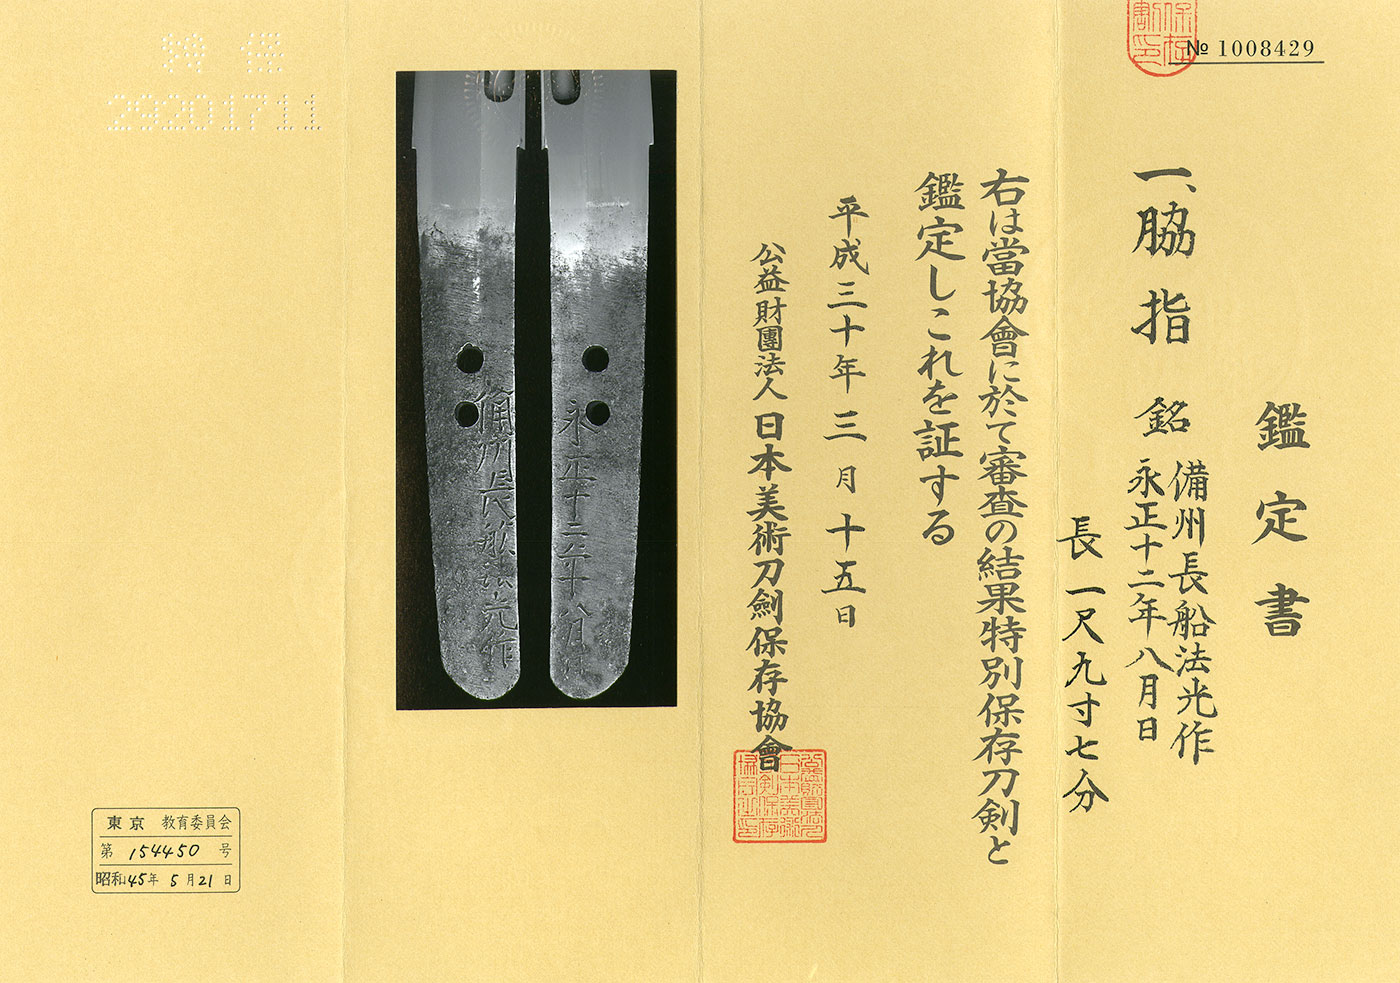 № 1008429
鑑定書
一、脇指 銘 備州長船法光作
永正十二年八月日
長一尺九寸七分
右は當協會に於て審査の結果特別保存刀剣と
鑑定しこれを証する
平成三十年三月十五日
公益財團法人日本美術刀劍保存協會
備州長船法光作
永正十二年八月日
29201711
東京 教育委員会
第 154450 号
昭和45年 5月21日